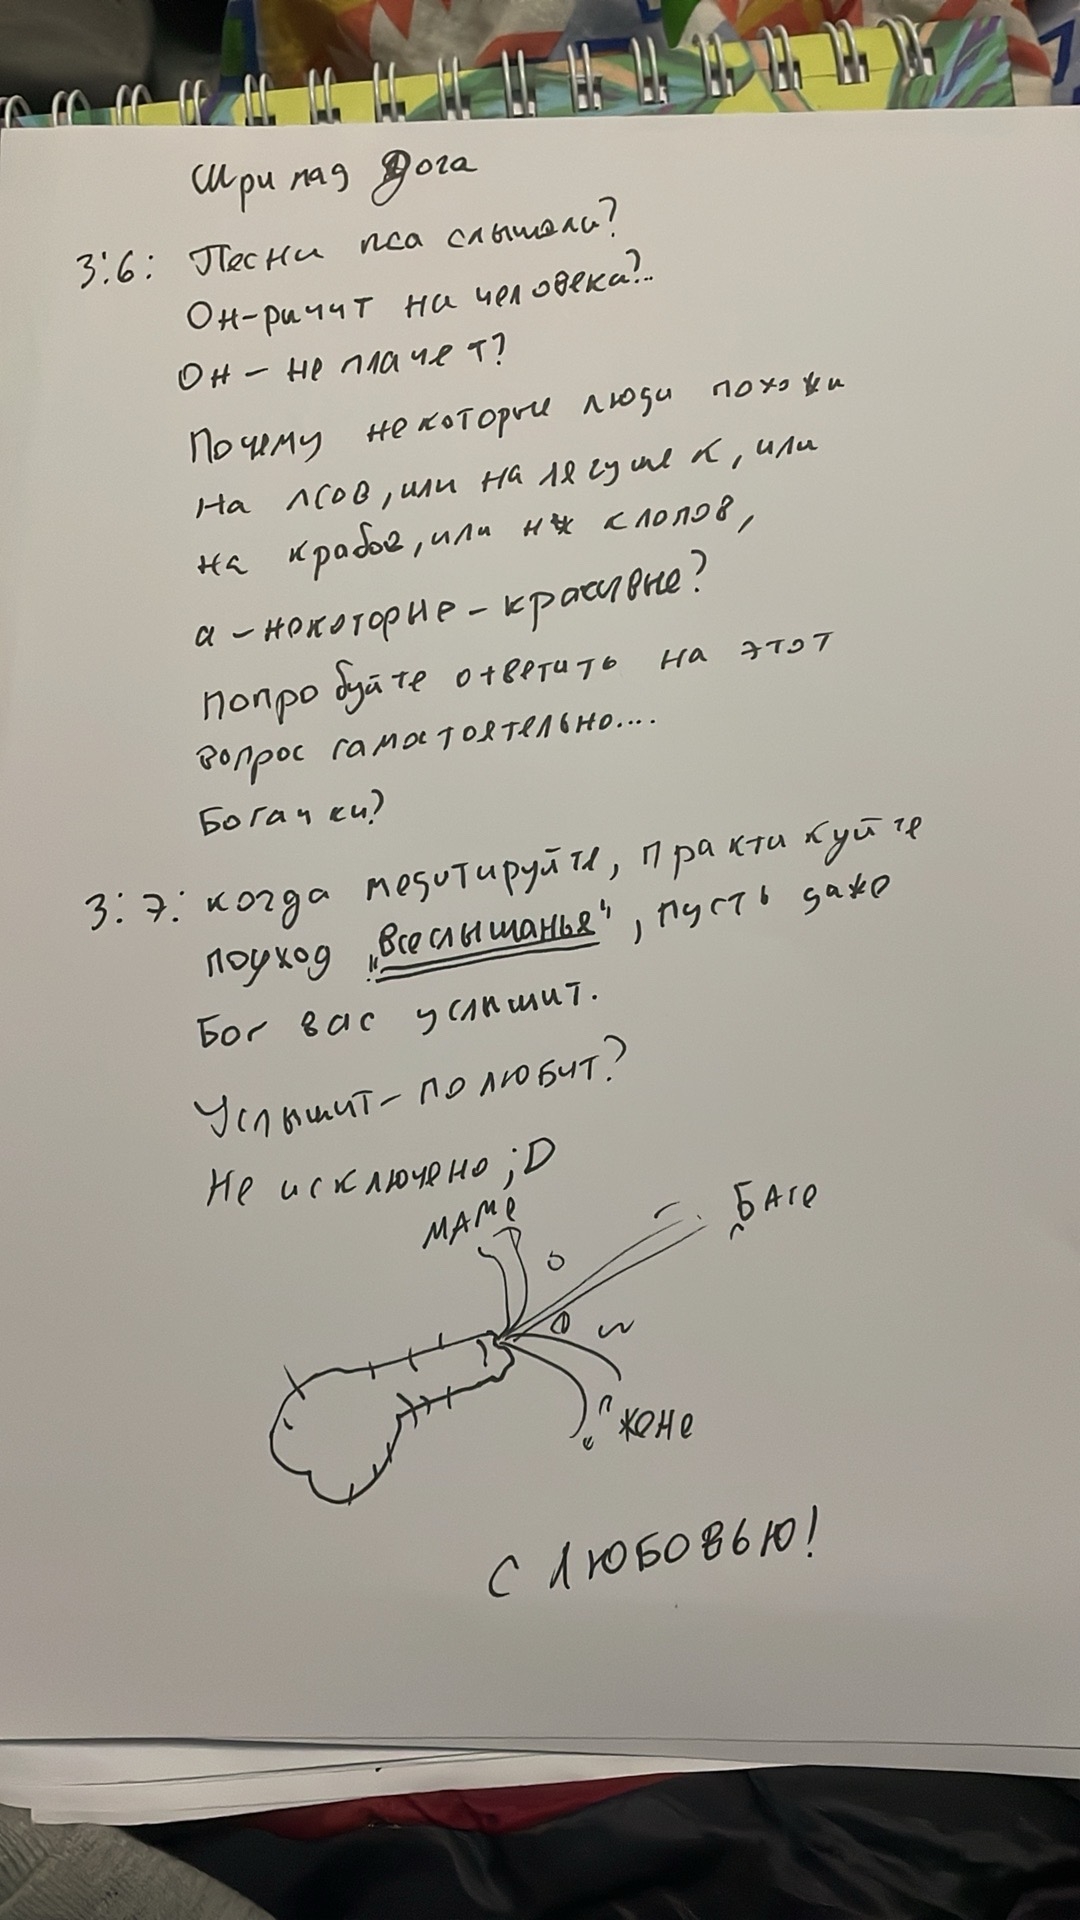 Шри пад Дога
3:6: Песни пса слышали?
Он-ричит на человека?..
Он - не плачет?
Почему некоторые люди похожи
на псов, или на лягушек, или
на крабов, или на клопов,
а - некоторые - красивые?
Попробуйте ответить на этот
вопрос самостоятельно....
Богачки?
3:7: когда медитируйте, практикуйте
подход "Всеслышанья", пусть даже
Бог вас услышит.
Услышит - полюбит?
Не исключено ;D
МАМе
БАге
"жене
С ЛЮБОВЬЮ!